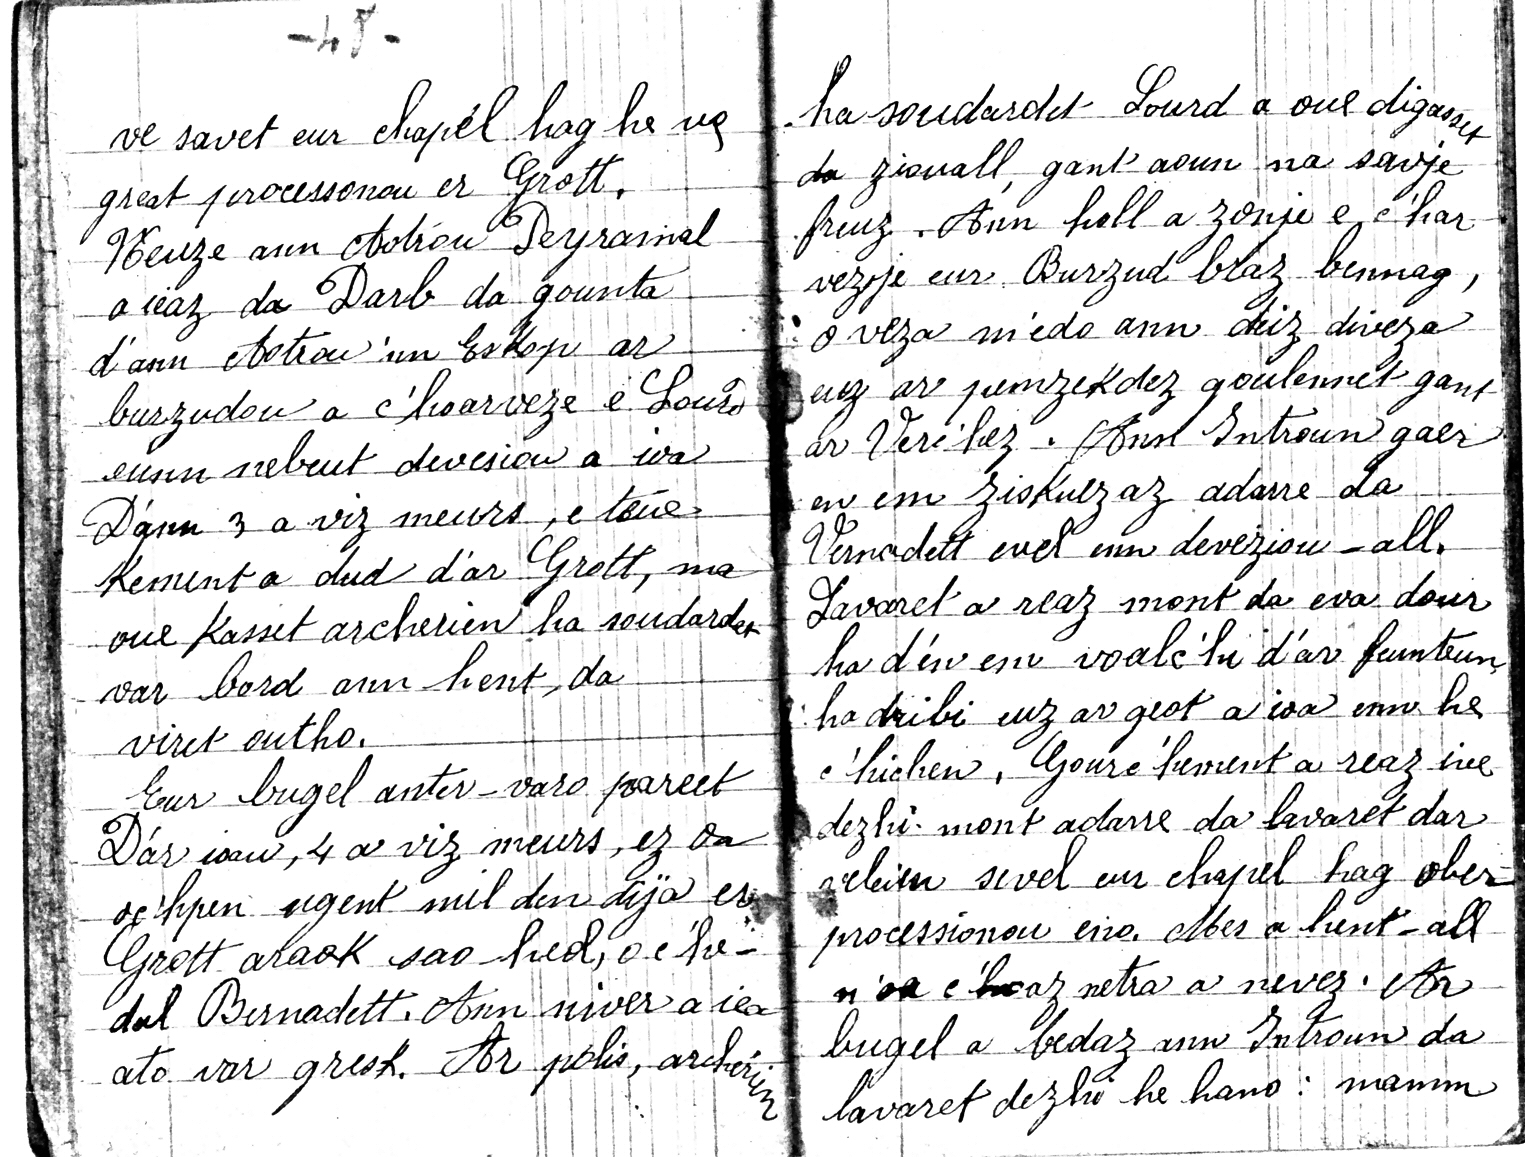 - 48 -
ve savet eur chapel hag he ve
great processonou er Grott.
Neuze ann Aotrou Peyramal
a ieaz da Darb da gounta
d'ann Aotrou 'nn Eskop ar
burzudou a c'hoarveze e Lourd
eunn nebeut devesiou a ioa
D'ann 3 a viz meurs, e teue
kement a dud d'ar Grott, ma
oue kasset archerien ha soudardet
var bord ann hent, da
viret outho.
Eur bugel anter-varo pareet
D'ar iaou, 4 a viz meurs, ez oa
oc'hpen ugent mil den dija er
Grott araok sao-heol, o c'he-
dal Bernadett. Ann niver a iea
ato var gresk. Ar polis, archerien
ha soudardet Lourd a oue digasset
da ziouall, gant aoun na savje
freuz. Ann holl a zonje e c'hoar
vezje eur Burzud braz bennag,
o veza m'edo ann deiz diveza
euz ar pemzekdez goulennet gant
ar Verc'hez. Ann Introun gaer
en em ziskuezaz adarre da
Vernadett evel enn deveziou-all.
Lavaret a reaz mont da eva dour
ha d'en em voalc'hi d'ar feunteun,
ha dribi euz ar geot a ioa enn he
c'hichen. Gourc'hement a reaz ive
dezhi mont adarre da lavaret dar
veleien sevel eur chapel hag ober
processionou eno. Mes a hent-all
n'oa c'hoaz netra a nevez. Ar
bugel a bedaz ann Introun da
lavaret dezhi he hano : mamm